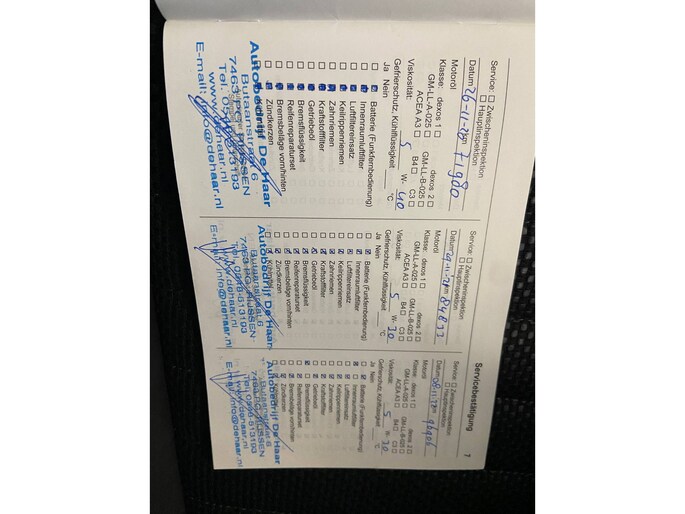 Servicebestätigung
7
Service: ☐ Zwischeninspektion
☐ Hauptinspektion
Datum 26-11-20
71980
Motoröl
Klasse: dexos 1 ☐ dexos 2 ☐
GM-LL-A-025 ☐ GM-LL-B-025 ☐
ACEA A3 ☐ B4 ☐ C3 ☐
Viskosität: 5 W- 40
Gefrierschutz, Kühlflüssigkeit °C
Ja Nein
Batterie (Funkfernbedienung)
Innenraumluftfilter
Luftfiltereinsatz
Keilrippenriemen
Zahnriemen
Kraftstofffilter
Getriebeöl
Bremsflüssigkeit
Reifenreparaturset
Bremsbeläge vorn/hinten
Zündkerzen
Autobedrijf De Haar
Butaanstraat 6
7463 PG RIJSSEN
Tel. 0548-613193
www.dehaar.nl
E-mail: info@dehaar.nl
Service: ☐ Zwischeninspektion
☐ Hauptinspektion
Datum
84833
Motoröl
Klasse: dexos 1 ☐ dexos 2 ☐
GM-LL-A-025 ☐ GM-LL-B-025 ☐
ACEA A3 ☐ B4 ☐ C3 ☐
Viskosität: 5 W- 30
Gefrierschutz, Kühlflüssigkeit °C
Ja Nein
Batterie (Funkfernbedienung)
Innenraumluftfilter
Luftfiltereinsatz
Keilrippenriemen
Zahnriemen
Kraftstofffilter
Getriebeöl
Bremsflüssigkeit
Reifenreparaturset
Bremsbeläge vorn/hinten
Zündkerzen
Autobedrijf De Haar
Butaanstraat 6
7463 PG RIJSSEN
Tel. 0548-613193
www.dehaar.nl
E-mail: info@dehaar.nl
Service: ☐ Zwischeninspektion
☐ Hauptinspektion
Datum
Motoröl
Klasse: dexos 1 ☐ dexos 2 ☐
GM-LL-A-025 ☐ GM-LL-B-025 ☐
ACEA A3 ☐ B4 ☐ C3 ☐
Viskosität: 5 W- 30
Gefrierschutz, Kühlflüssigkeit °C
Ja Nein
Batterie (Funkfernbedienung)
Innenraumluftfilter
Luftfiltereinsatz
Keilrippenriemen
Zahnriemen
Kraftstofffilter
Getriebeöl
Bremsflüssigkeit
Reifenreparaturset
Bremsbeläge vorn/hinten
Zündkerzen
Autobedrijf De Haar
Butaanstraat 6
7463 PG RIJSSEN
Tel. 0548-613193
www.dehaar.nl
E-mail: info@dehaar.nl